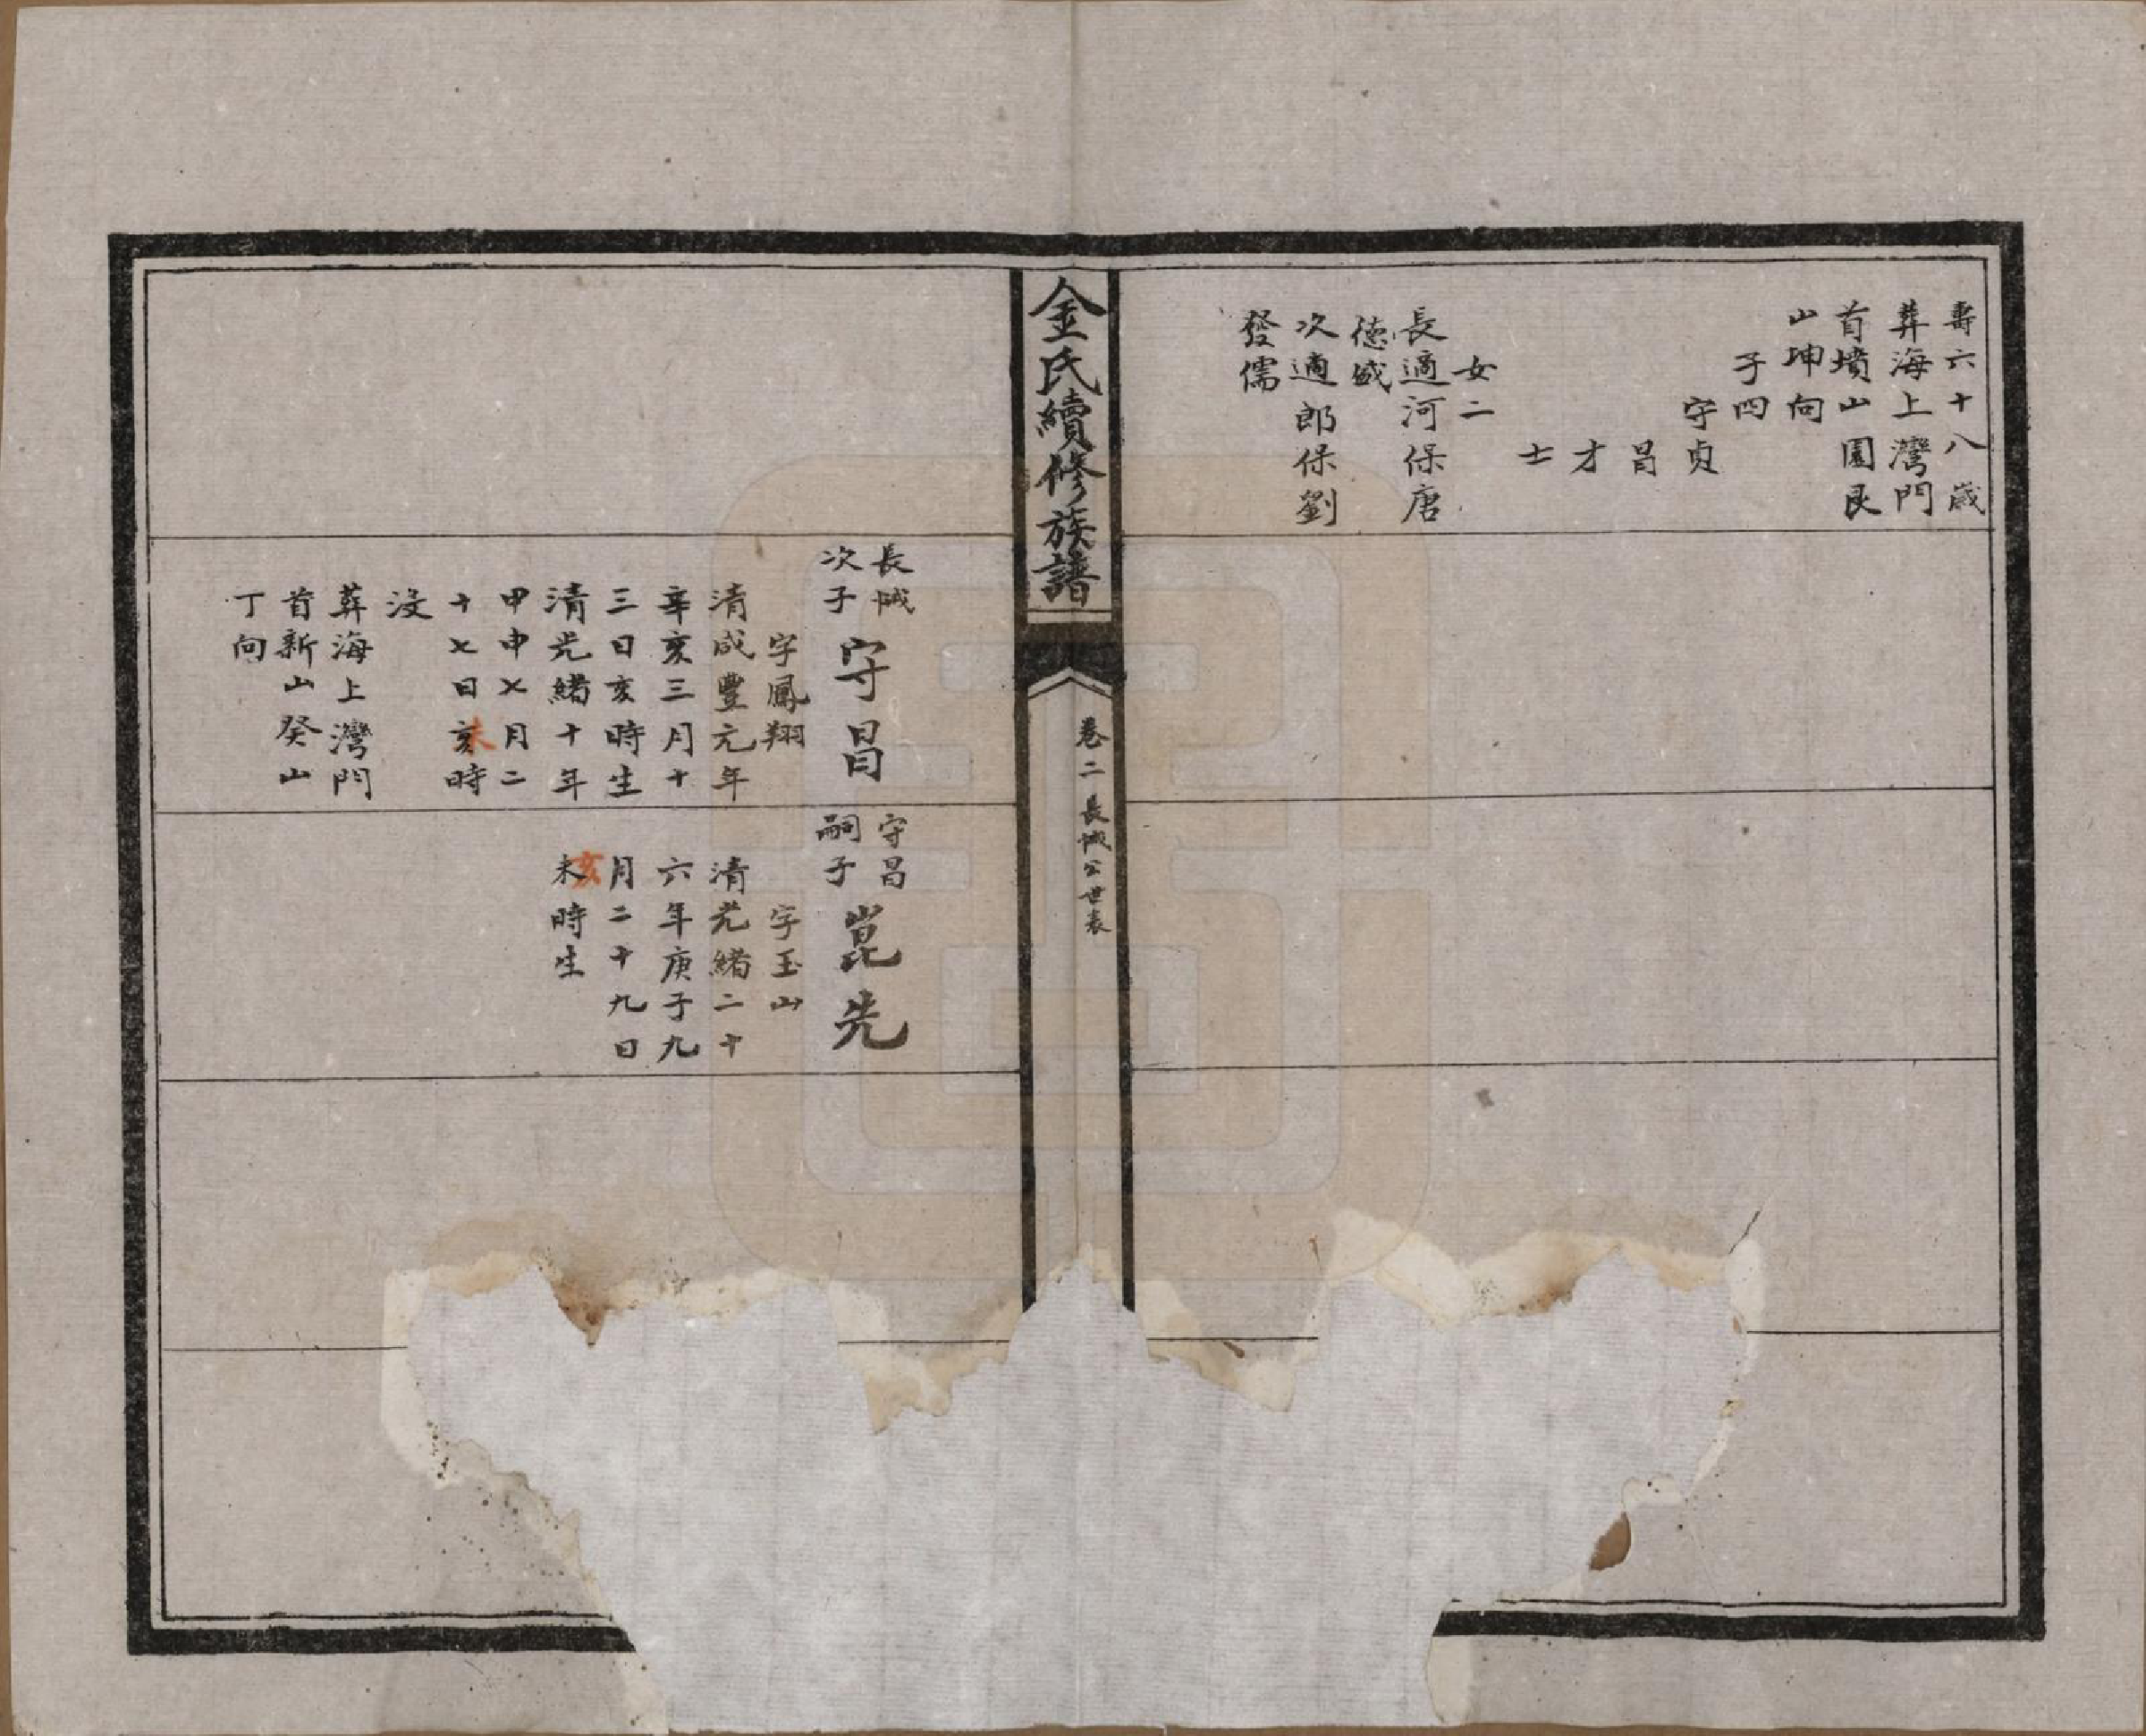 壽六十八歲
葬海上灣門
首墳山園艮
山坤向
子四
守貞
昌
才
士
女二
長適河保唐
德盛
次適郎保劉
發儒
金氏續修族譜
卷二 長城公世表
長城
次子
守昌
字鳳翔
清咸豐元年
辛亥三月十
三日亥時生
清光緒十年
甲申七月二
十七日亥未時
沒
葬海上灣門
首新山癸山
丁向
守昌
嗣子
崑先
字玉山
清光緒二十
六年庚子九
月二十九日
未亥時生